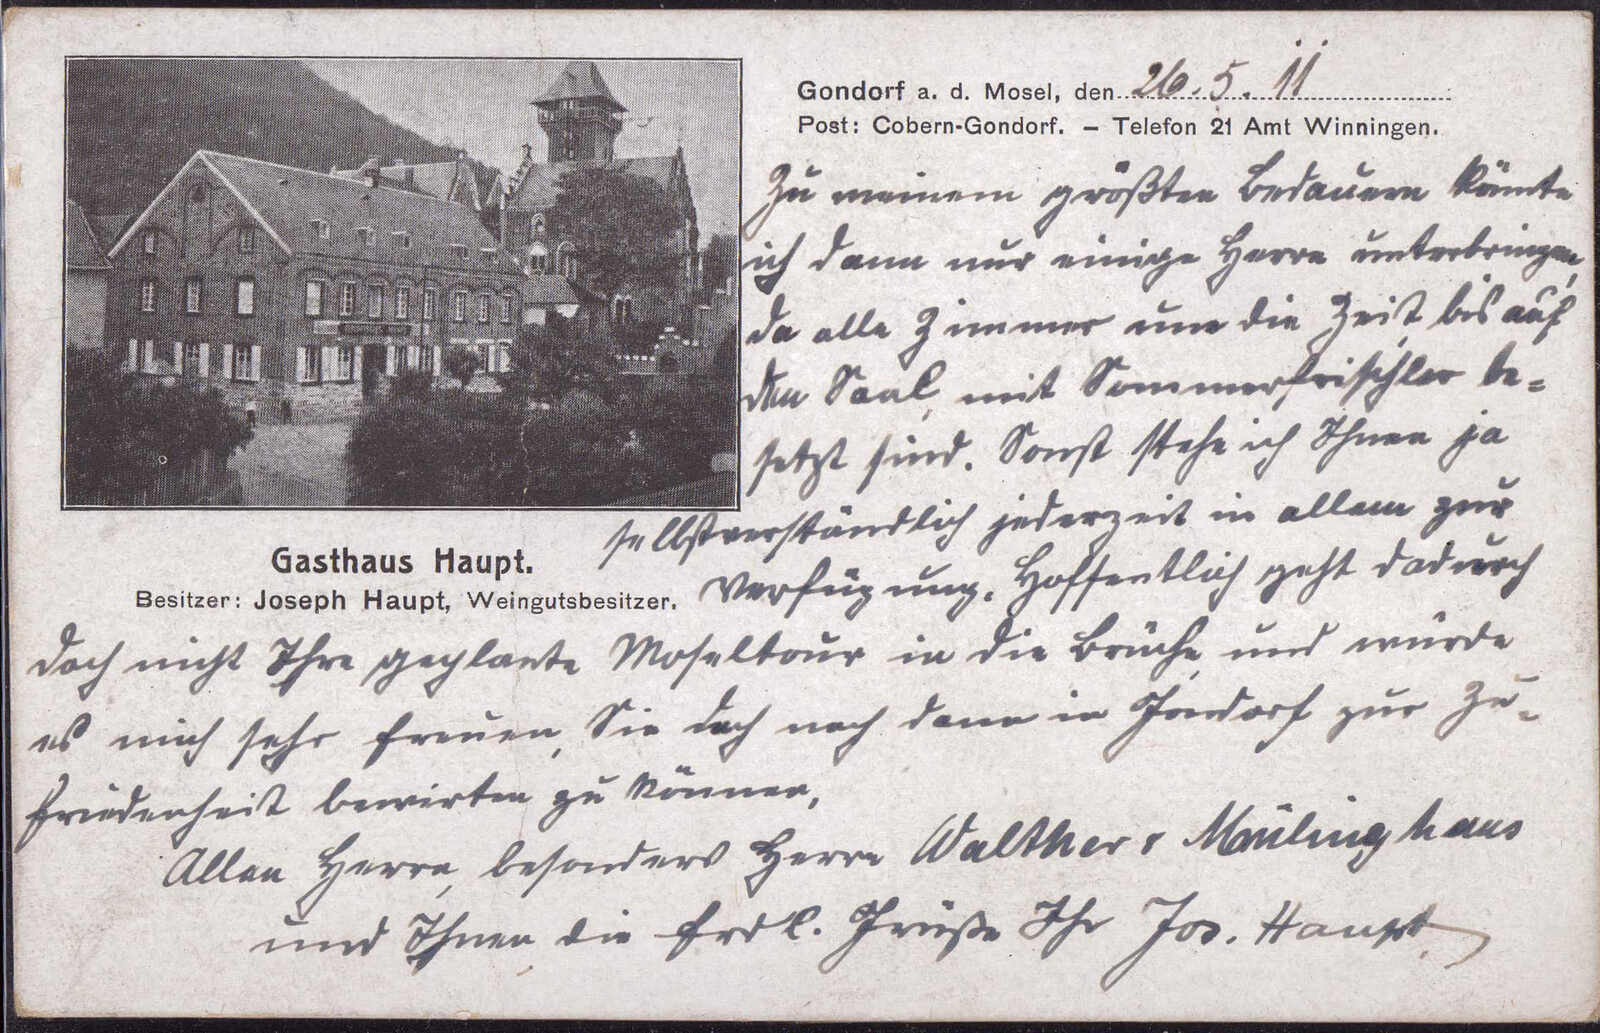 Gondorf a. d. Mosel, den 26.5.11
Post: Cobern-Gondorf. – Telefon 21 Amt Winningen.
Zu meinem größten Bedauern könnte
ich dann nur einige Herrn unterbringen,
da alle Zimmer um die Zeit bis auf
den Saal mit Sommerfrischler be=
setzt sind. Sonst stehe ich Ihnen ja
selbstverständlich jederzeit in allem zur
Verfügung. Hoffentlich geht dadurch
Gasthaus Haupt.
Besitzer: Joseph Haupt, Weingutsbesitzer.
doch nicht Ihre geplante Moseltour in die Brüche und würde
es mich sehr freuen, Sie doch noch dann in Gondorf zur Zu=
friedenheit bewirten zu können.
Allen Herrn, besonders Herrn Walther & Mülinghaus
und Ihnen die frdl. Grüße Ihr Jos. Haupt